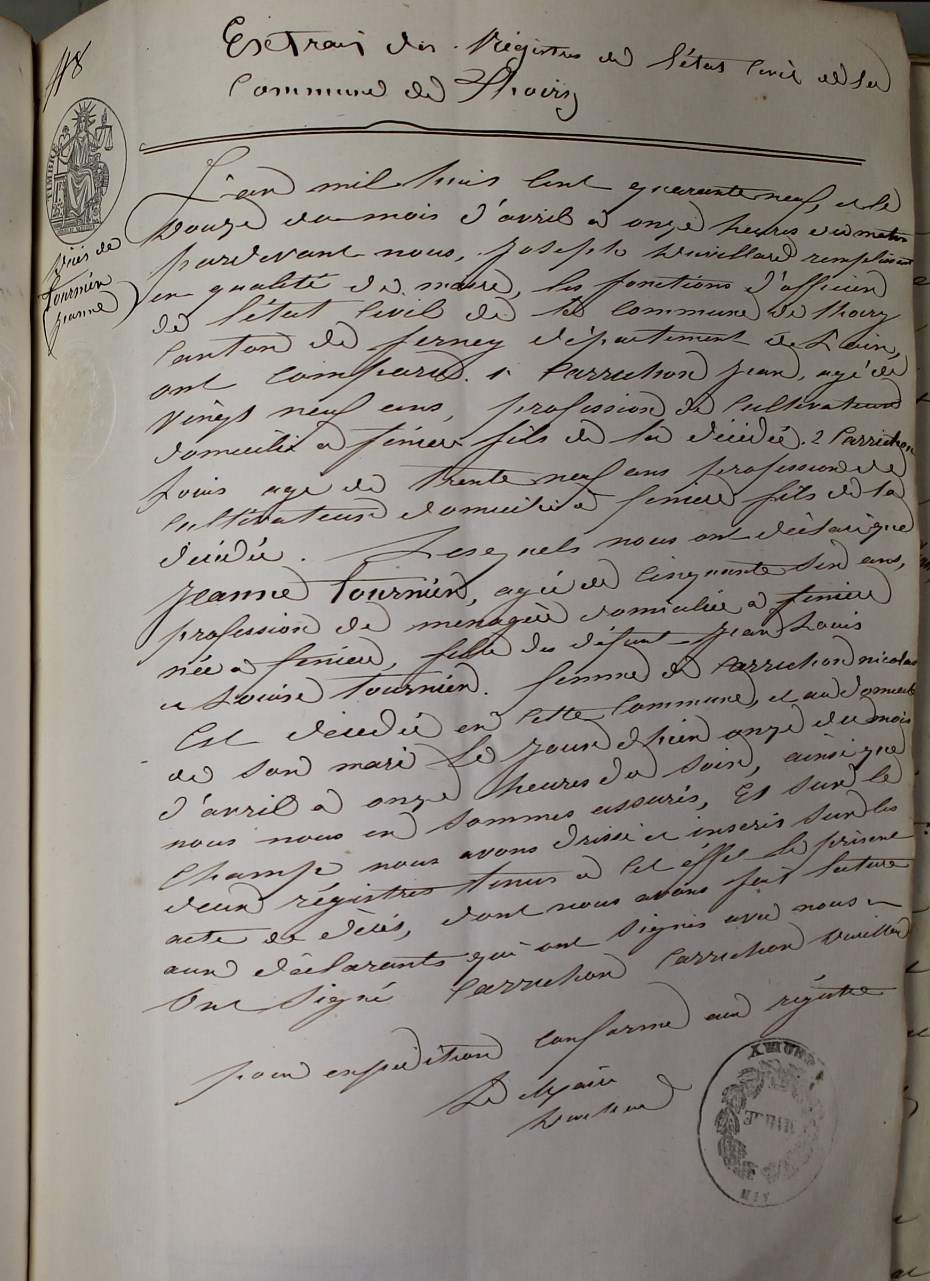 118
Extrait des Régistres de l'état Civil de la
Commune de Thoiry
TIMBRE
Décès de
Tournier
Jeanne
L'an mil huit cent quarante neuf, et le
Douze du mois d'avril à onze heures du matin
pardevant nous, Joseph Duvillard remplissant
en qualité de maire, les fonctions d'officier
de l'état Civil de la Commune de Thoiry
Canton de ferney département de L'ain,
ont comparu. 1 Carrichon Jean, agé de
vingt neuf ans, profession de Cultivateur
domicilié à fenière fils de la décédée. 2 Carrichon
Louis agé de trente neuf ans profession de
Cultivateur domicilié à fenière fils de la
décédée. Lesquels nous ont déclaré que
Jeanne Tournier, agée de Cinquante six ans,
profession de ménagère domiciliée à fenière
née à fenière, fille du défunt Jean Louis
et Louise Tournier. femme de Carrichon nicolas
Est décédée en Cette Commune, et au domicile
de son mari le jour d'hier onze du mois
d'avril à onze heures du soir, ainsi que
nous nous en sommes assurés, Et sur le
Champ nous avons dressé et inscris sur les
deux régistres tenus à Cet éffet le présent
acte de décès, dont nous avons fait lecture
aux déclarants qui ont signés avec nous
Ont signé Carrichon Carrichon Duvillard
pour expédition conforme au régistre
Le Maire
Duvillard
MAIRIE
AIN